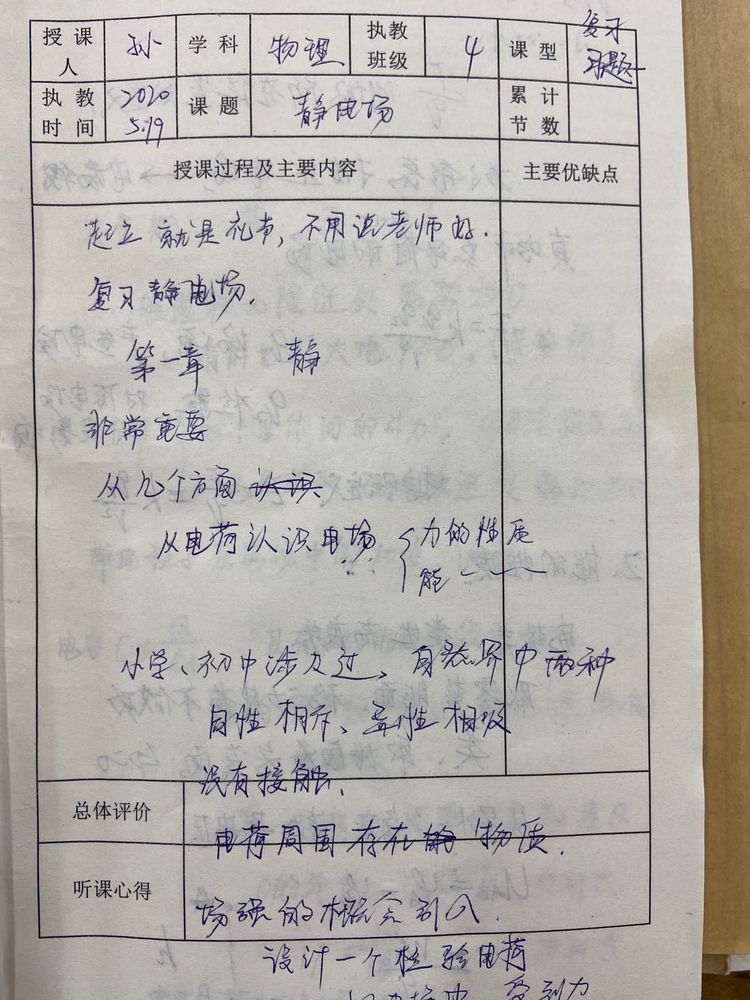 授课人 孙 学科 物理 执教班级 4 课型 复习 习题
执教时间 2020 5.19 课题 静电场 累计节数
授课过程及主要内容 主要优缺点
起立 就是礼节, 不用说老师好.
复习静电场.
第一章 静
非常重要
从几个方面认识
从电荷认识电场 { 力的性质
能 ——
小学、初中涉及过、自然界中两种
同性相斥、异性相吸
没有接触.
总体评价
电荷周围存在的物质.
听课心得
场强的概念引入.
设计一个检验电荷
受到力